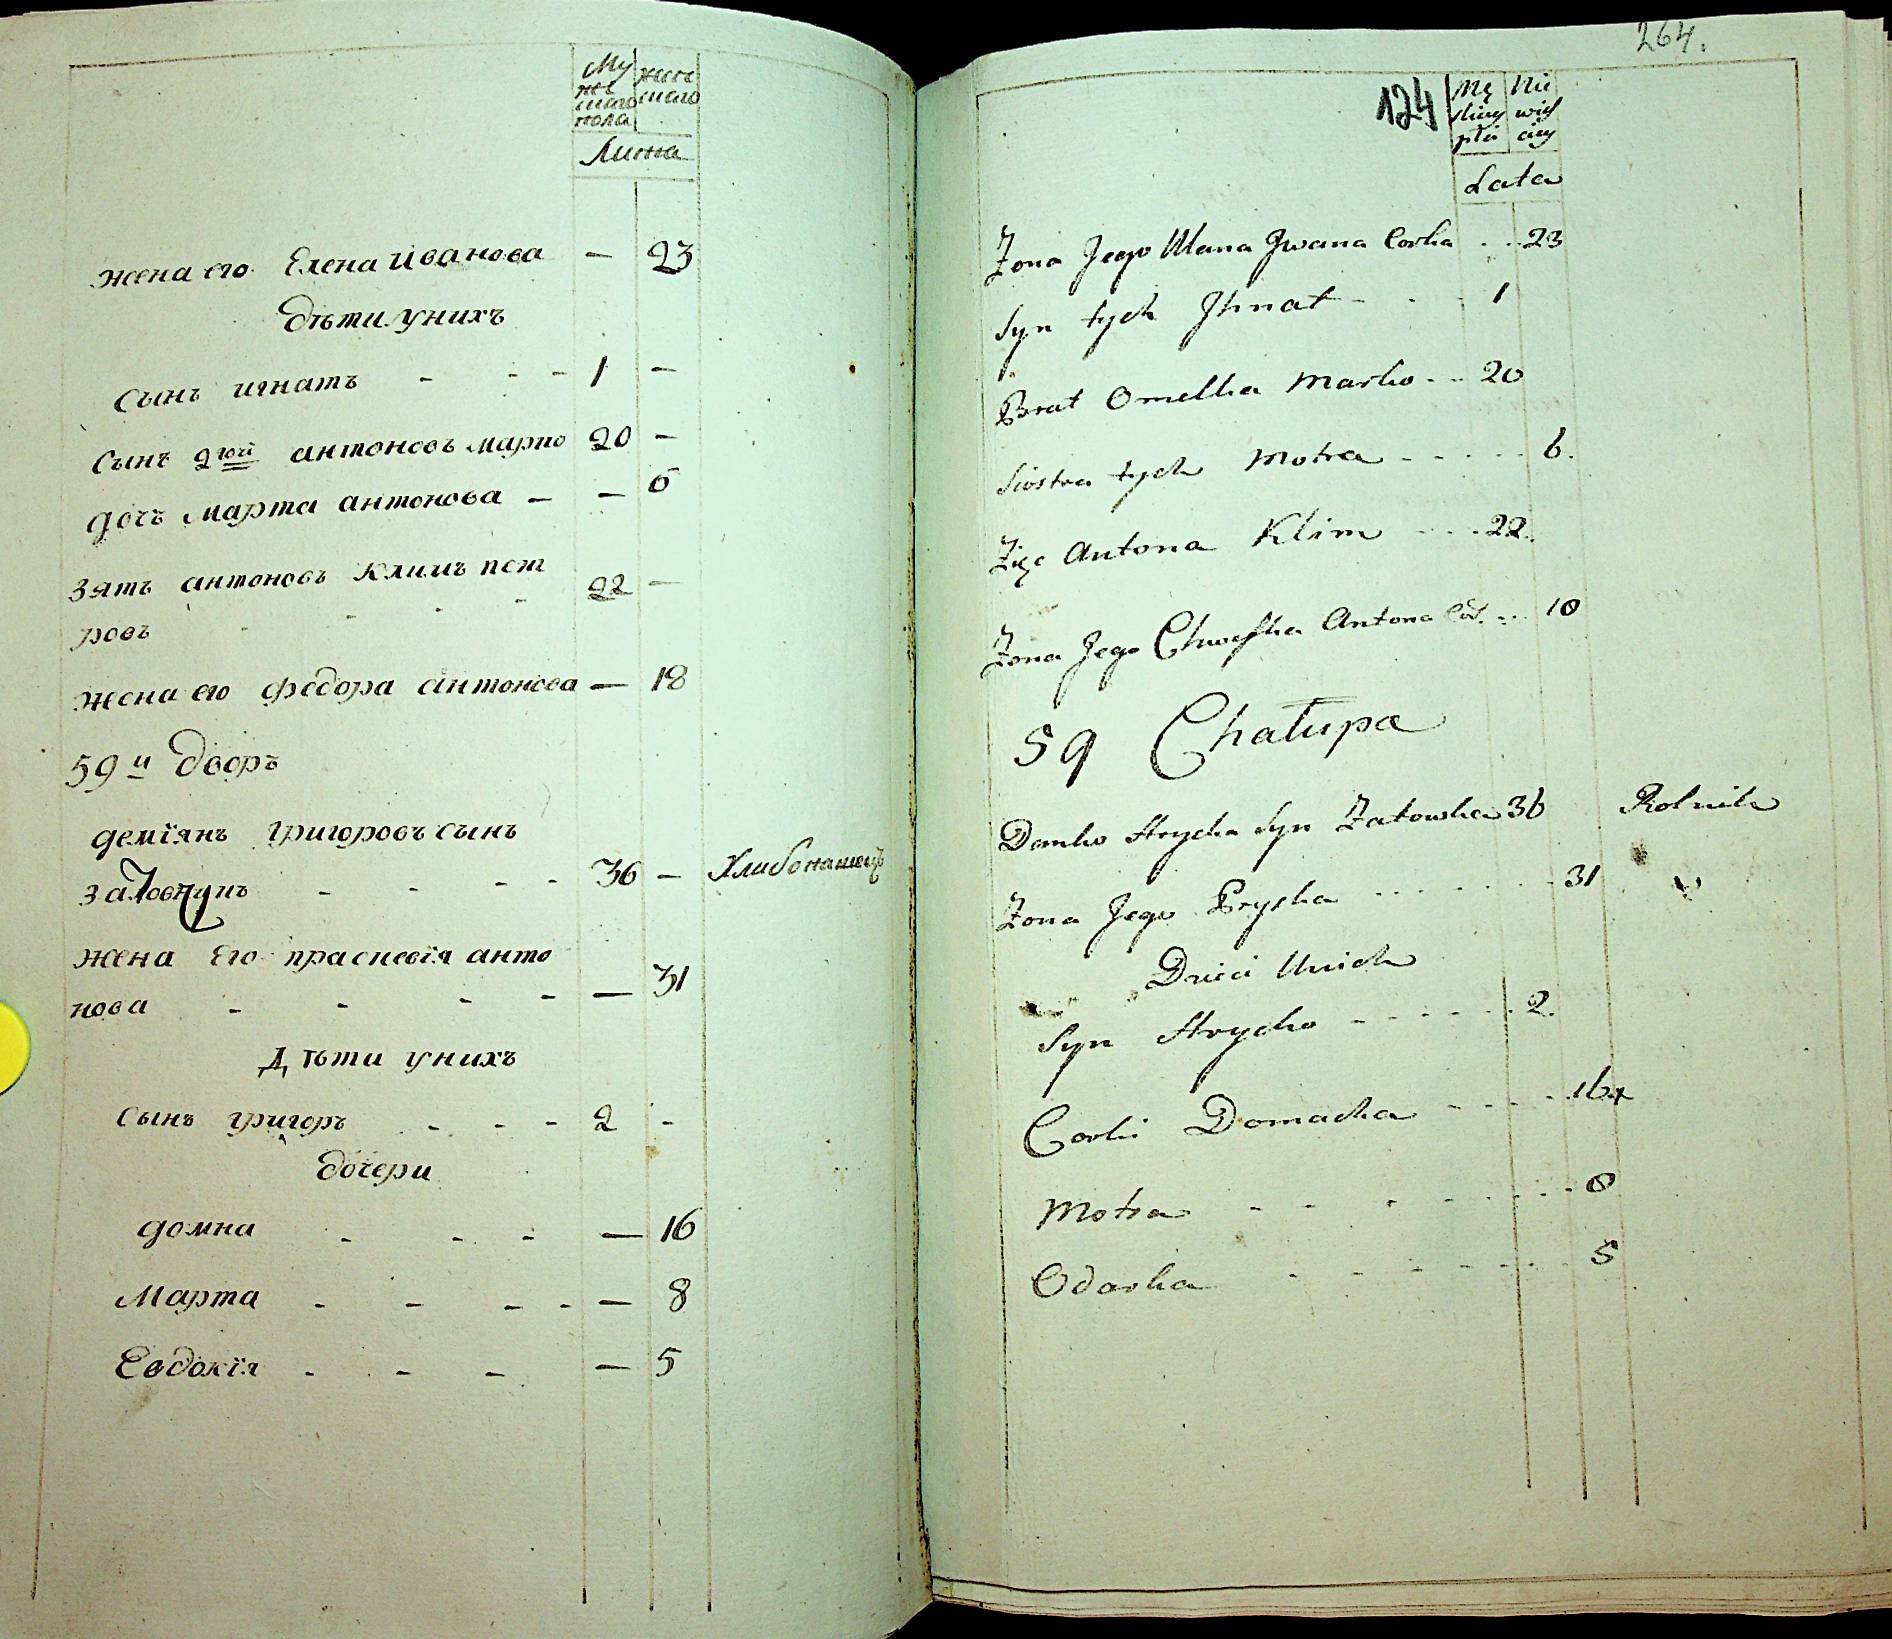 Му
жес
каго
пола
жен
скаго
Лѣта
жена его Елена иванова — 23
дѣти у нихъ
сынъ игнатъ - - - 1 —
сынъ 2гой антоновъ марко 20 —
дочъ марта антонова — — 6
зятъ антоновъ климъ пет
ровъ - - - 22 —
жена его федора антонова — 18
59й дворъ
деміянъ григоровъ сынъ
- - - - 36 — Хлибопашецъ
жена его праскевія анто
нова - - - - — 31
Дѣти у нихъ
сынъ григоръ - - - 2 -
дочери
домна - - - — 16
Марта - - - - — 8
Евдокія - - - — 5
264.
124
Mę
skiey
płci
Nie
wies
ciey
Lata
Zona Jego Ulana Jwana Corka . . 23
Syn tych Jhnat - - - 1
Brat Omelka Marko - - 20
Siostra tych Motra - - - - - 6.
Zięc Antona Klim - - - 22.
Zona Jego Chweska Antona Cor. - - 18
59 Chałupa
Demko Hrycka Syn Zatowka 36 Rolnik
Zona Jego Pryska - - - - - - 31
Dzieci Unich
Syn Hrycko - - - - - - 2.
Corki Domacka - - - - 16x
Motra - - - - - - - 8
Odarka - - - - - - - 5